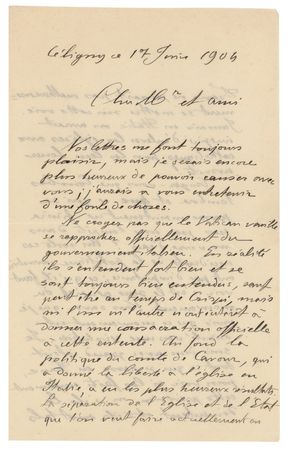 Céligny ce 17 Juin 1904
Cher Mr et ami
Vos lettres me font toujours
plaisir, mais je serais encore
plus heureux de pouvoir causer avec
vous; j'aurais à vous entretenir
d'une foule de choses.
Ne croyez pas que le Vatican veuille
se rapprocher officiellement du
gouvernement italien. En réalité
ils s'entendent fort bien et se
sont toujours bien entendus, sauf
peut être au temps de Crispi, mais
ni l'un ni l'autre n'ont intérêt à
donner une consécration officielle
à cette entente. Au fond la
politique du comte de Cavour, qui
a donné la liberté à l'église en
Italie, a eu les plus heureux résultats.
La séparation de l'Eglise et de l'Etat
que l'on veut faire actuellement en